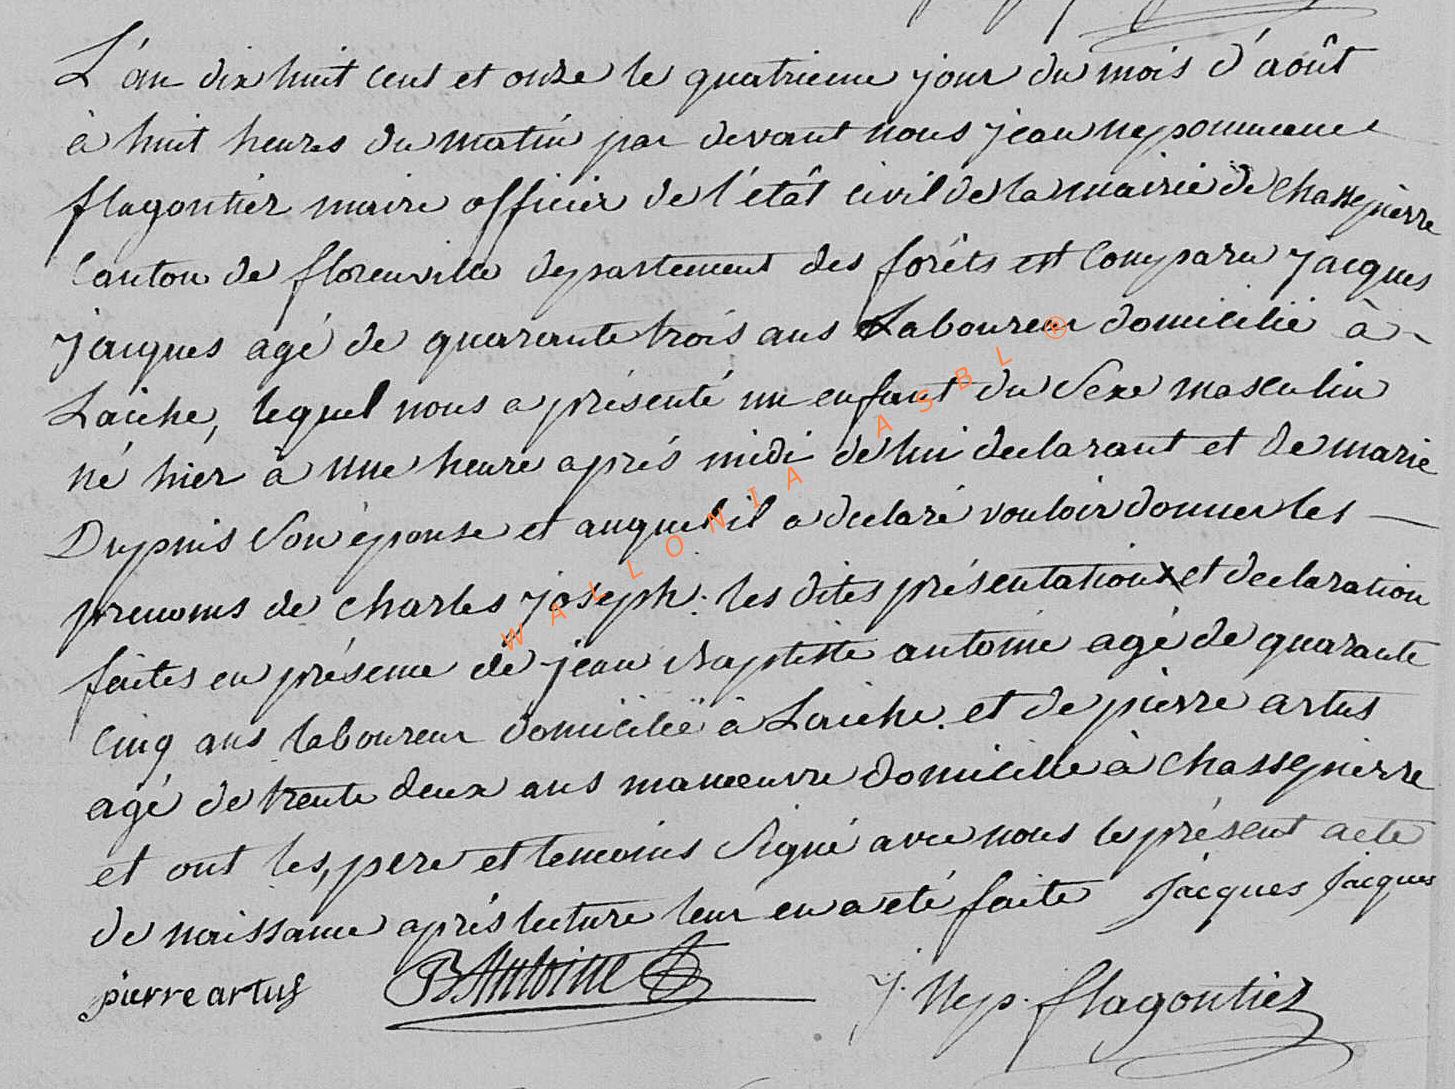 L'an dix huit cent et onze le quatrieme jour du mois d'août
à huit heures du matin par devant nous jean nepomucene
flagontier maire officier de l'etât civil de la mairie de Chassepierre
Canton de florenville departement des forêts est Comparu jacques
jacques agé de quarante trois ans Laboureur domicilié à
Laiche, lequel nous a présenté un enfant du Sexe masculin
né hier à une heure aprés midi de lui declarant et de marie
Dupuis Son épouse et auquel il a declaré vouloir donner les
prenoms de Charles joseph. les dites présentation et declaration
faites en présence de jean Baptiste antoine agé de quarante
Cinq ans laboureur domicilié à Laiche. et de pierre artus
agé de trente deux ans manoeuvre domicilié à Chassepierre
et ont les, pere et temoins Signé avec nous le présent acte
de naissance aprés lecture leur en a eté faite Jacques Jacques
pierre artus JBAntoine J. Nep. flagontier
WALLONIA ASBL ®